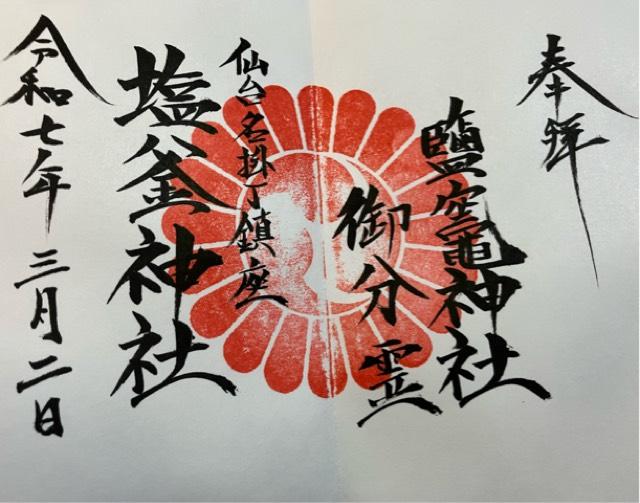 奉拝
鹽竈神社
御分霊
仙台名掛丁鎮座
塩釜神社
令和七年三月二日